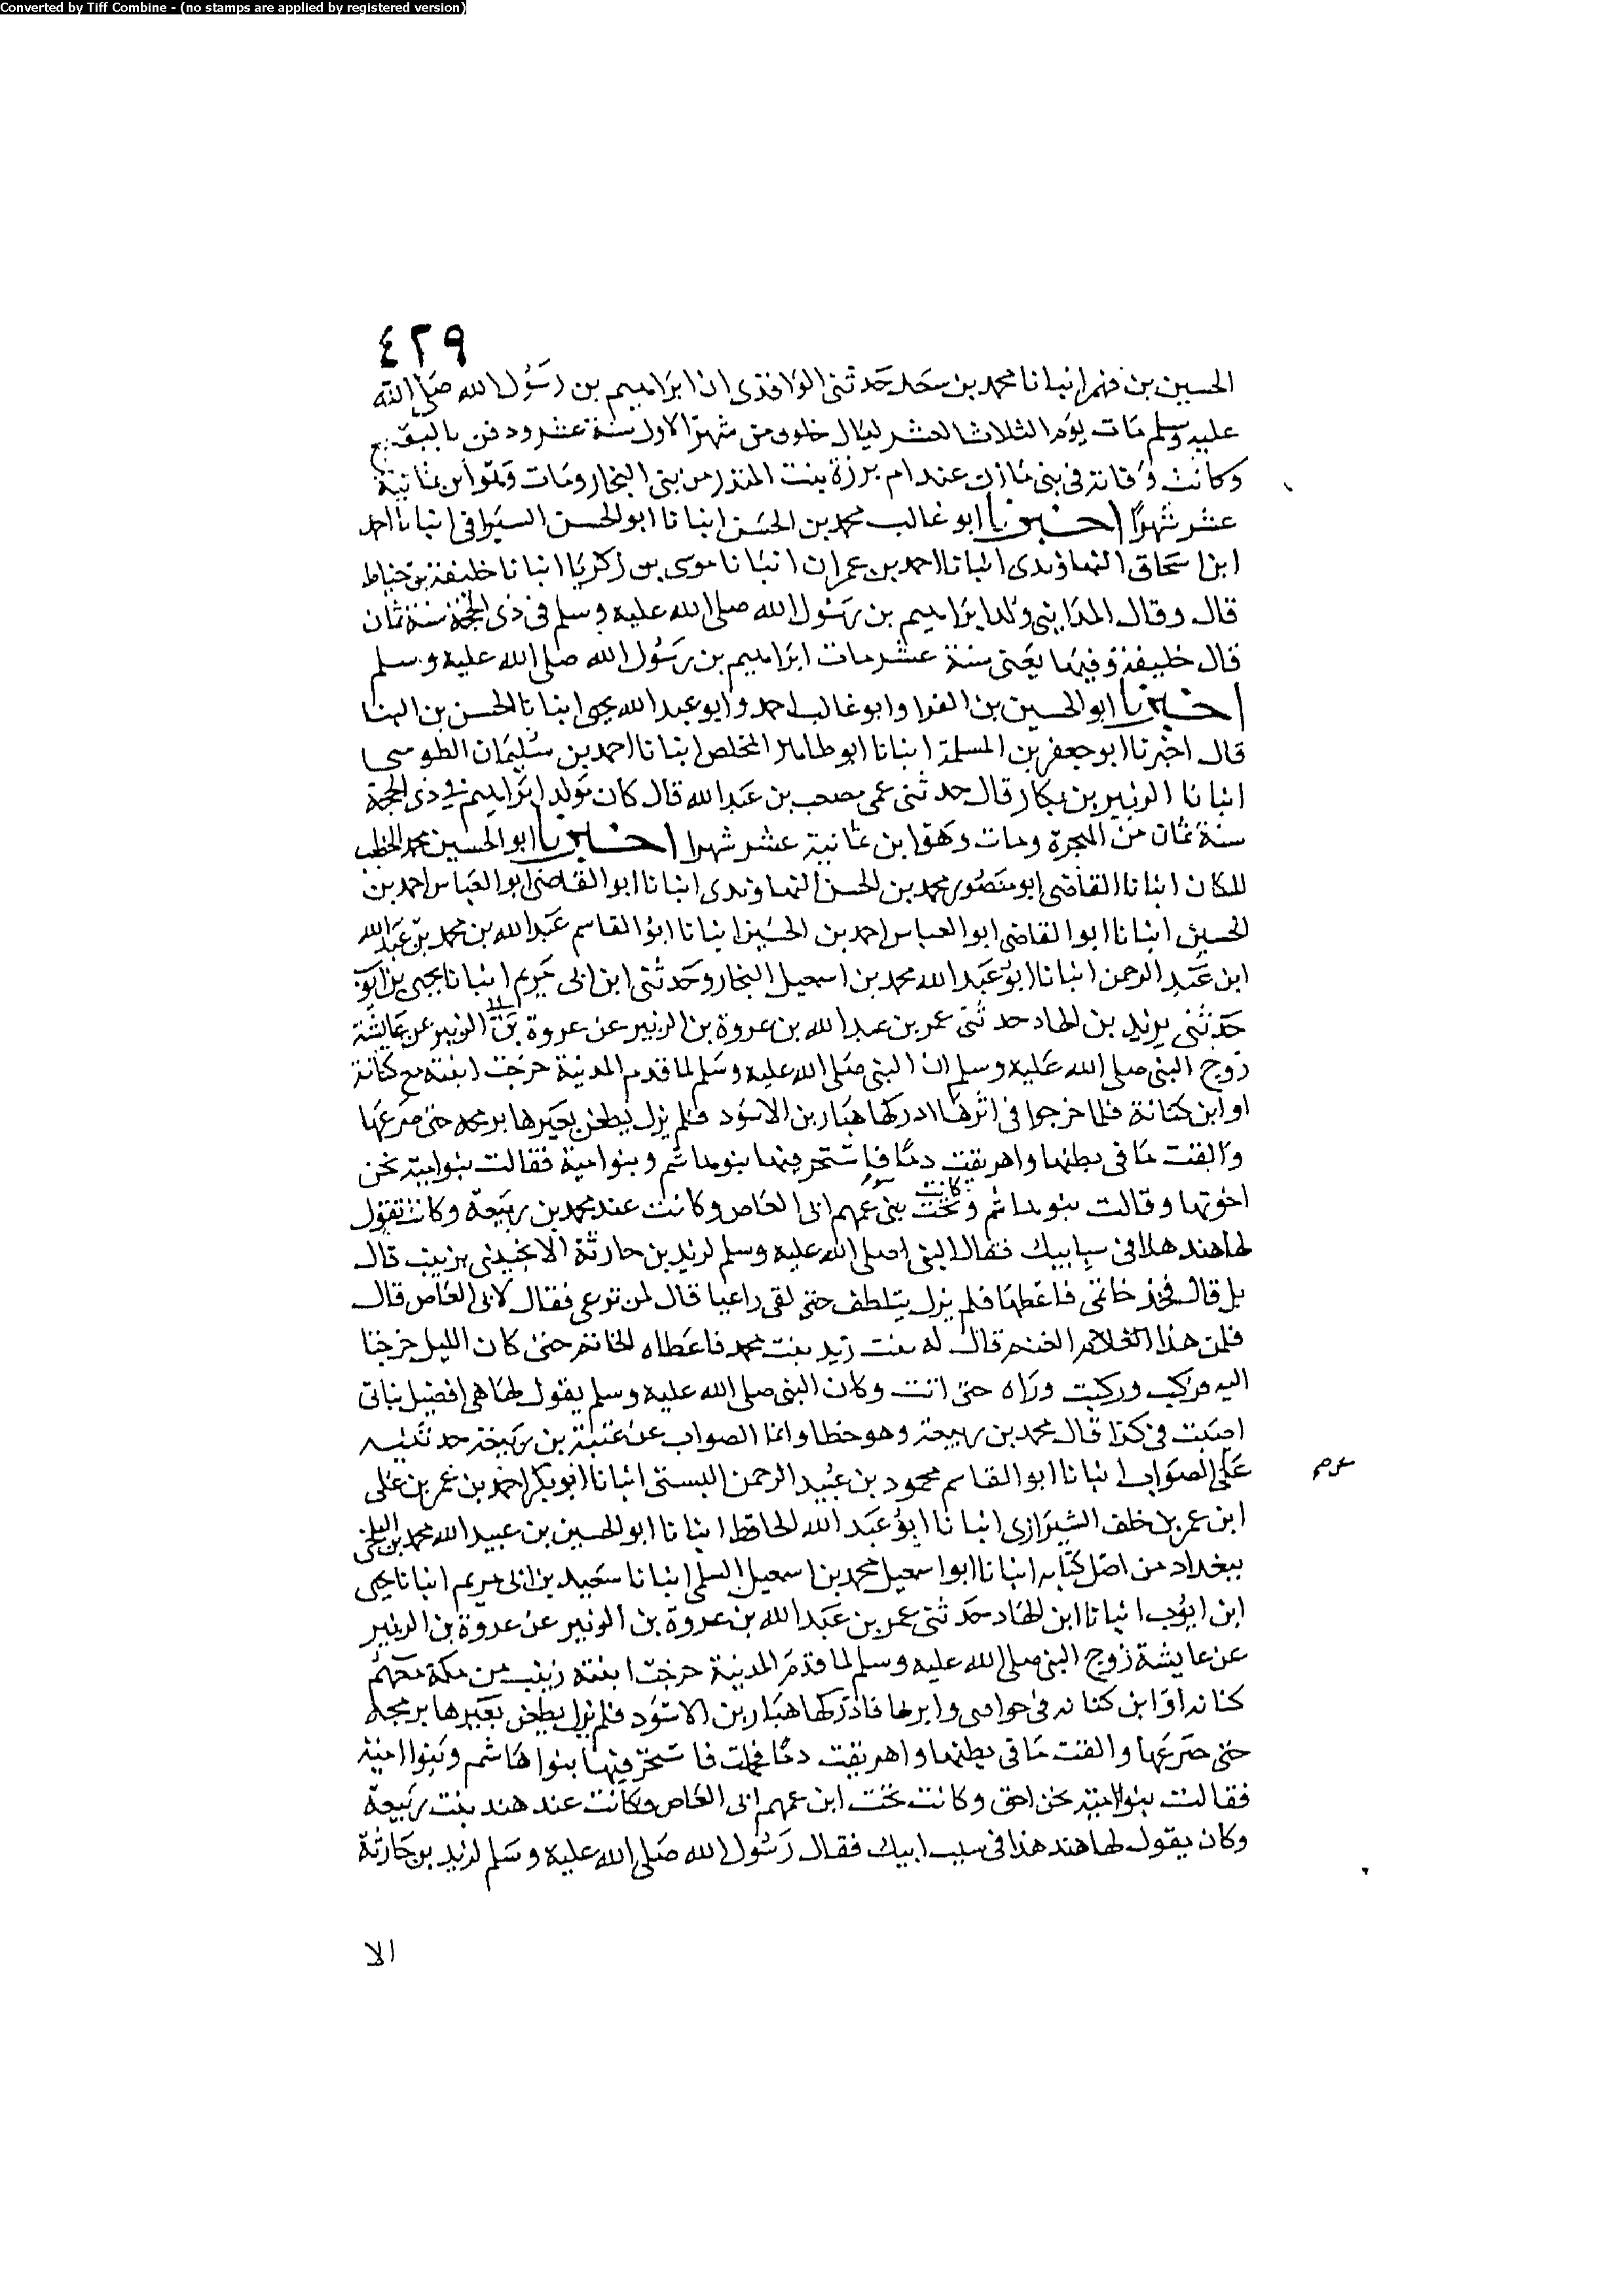 Converted by Tiff Combine - (no stamps are applied by registered version)
٤٢٩
الحسين بن فهم انبانا محمد بن سعد حدثنى الواقدى ان ابراهيم بن رسول الله صلى الله
عليه وسلم مات يوم الثلاثا لعشر ليال خلون من شهر الاول سنة عشر ودفن بالبقيع
وكانت وفاته فى بنى مازن عند ام برزة بنت المنذر من بنى النجار ومات وهو ابن ثمانية
عشر شهرا اخبرنا ابو غالب محمد بن الحسن انبانا ابو الحسن السيرافى انبانا احمد
ابن اسحاق النهاوندى انبانا احمد بن عمران انبانا موسى بن زكريا انبانا خليفة بن خياط
قال وقال المداينى ولد ابراهيم بن رسول الله صلى الله عليه وسلم فى ذى الحجة سنة ثمان
قال خليفة وفيها يعنى سنة عشر مات ابراهيم بن رسول الله صلى الله عليه وسلم
اخبرنا ابو الحسين بن الفرا وابو غالب احمد وابو عبد الله يحيى ابنانا الحسن بن البنا
قال اخبرنا ابو جعفر بن المسلمة انبانا ابو طاهر المخلص انبانا احمد بن سليمان الطوسى
انبانا الزبير بن بكار قال حدثنى عمى مصعب بن عبد الله قال كان مولد ابراهيم فى ذى الحجة
سنة ثمان من الهجرة ومات وهو ابن ثمانية عشر شهرا اخبرنا ابو الحسين محمد الخطيب
للكان انبانا القاضى ابو منصور محمد بن الحسن النهاوندى انبانا ابو القاضى ابو العباس احمد بن
الحسين انبانا ابو القاضى ابو العباس احمد بن الحسين انبانا ابو القاسم عبد الله بن محمد بن عبد الله
ابن عبد الرحمن انبانا ابو عبد الله محمد بن اسمعيل البخار وحدثنى ابن ابى مريم انبانا يحيى بن ايوب
حدثنى يزيد بن الهاد حدثنى عمر بن عبد الله بن عروة بن الزبير عن عروة بن الزبير عن عايشة
زوج النبى صلى الله عليه وسلم ان النبى صلى الله عليه وسلم لما قدم المدينة خرجت ابنته مع كنانة
او ابن كنانة فلما خرجوا فى اثرها ادركها هبار بن الاسود فلم يزل يطعن بعيرها برمحه حتى صرعها
والقت ما فى بطنها واهريقت دما فاشتجر فيها بنو هاشم وبنو امية فقالت بنو امية نحن
احق بها وقالت بنو هاشم وكانت تحت بنى عمهم ابى العاص وكانت عند محمد بن ربيعة وكانت تقول
لها هند هلا فى سب ابيك فقال النبى صلى الله عليه وسلم لزيد بن حارثة الا تجيئنى بزينب قال
بل قال فخذ خاتمى فاعطها فلم يزل يتلطف حتى لقى راعيا قال لمن ترعى فقال لابى العاص قال
فلمن هذا الغلام الغنم قال له بنت زيد بنت محمد فاعطاه الخاتم حتى كان الليل خرجنا
اليه فركب وركبت وراه حتى اتت وكان النبى صلى الله عليه وسلم يقول لها هى افضل بناتى
اصيبت فى كذا قال محمد بن ربيعة وهو خطا وانما الصواب عن عتبة بن ربيعة حدثنيه
على الصواب انبانا ابو القاسم محمود بن عبيد الرحمن البستى انبانا ابو بكر احمد بن عمر بن على
ابن عمر بن خلف الشيرازى انبانا ابو عبد الله الحافظ انبانا ابو الحسين بن عبيد الله محمد بن البلخى
ببغداد من اصل كتابه انبانا ابو اسمعيل محمد بن اسمعيل السلمى انبانا سعيد بن ابى مريم انبانا يحيى
ابن ايوب انبانا ابن الهاد حدثنى عمر بن عبد الله بن عروة بن الزبير عن عروة بن الزبير
عن عايشة زوج النبى صلى الله عليه وسلم لما قدم المدينة خرجت ابنته زينب من مكة معهم
كنانه او ابن كنانه فى فادركها هبار بن الاسود فلم يزل يطعن بعيرها برمحه
حتى صرعها والقت ما فى بطنها واهريقت دما فحملت فاشتجر فيها بنوا هاشم وبنوا امية
فقالت بنوا امية نحن احق وكانت تحت ابن عمهم ابى العاص فكانت عند هند بنت ربيعة
وكان يقول لها هند هذا فى سبب ابيك فقال رسول الله صلى الله عليه وسلم لزيد بن حارثة
الا